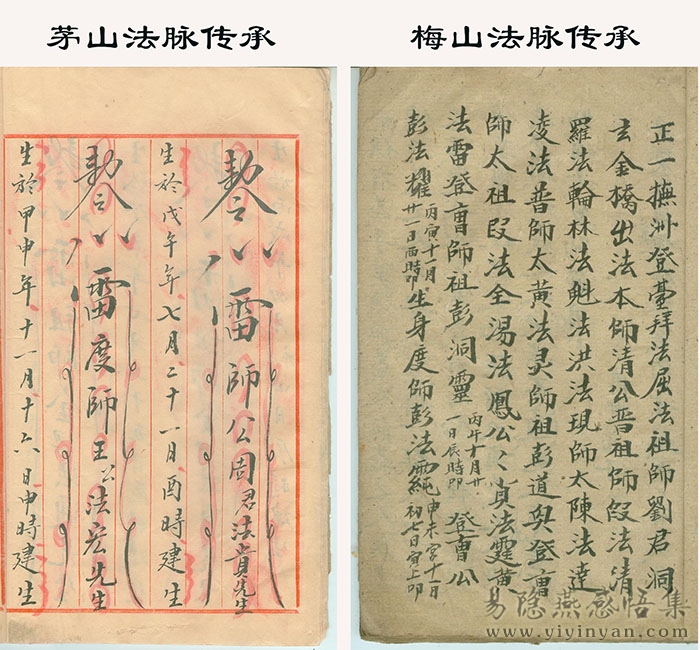 茅山法脉传承
梅山法脉传承
雷師公周君法貴先生
生於戊午年七月二十一日酉時建生
雷度師王公法宏先生
生於甲申年十一月十六日申時建生
正一撫洲登臺拜法屈法祖師劉君洞
玄金橋出法本師清公晋祖師段法清
羅法輪林法魁法洪法現師太陳法達
凌法普師太黃法灵師祖彭道與登曹
師太祖段法全湯法鳳公〻貞法霆黃
法雷登曹師祖彭洞靈 丙午十月廿一日辰時 登曹公
彭法耀 丙寅十一月廿一日酉時 生身度師彭法 初七日寅上
易隐燕感悟集
www.yiyinyan.com